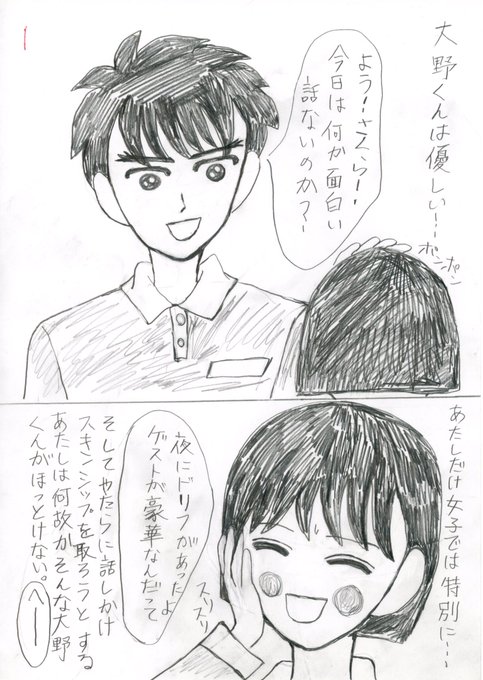 1
大野くんは優しい…
よう!さくらー!
今日は何か面白い
話ないのか?
ポンポン
あたしだけ女子では特別に…
夜にドリフがあったよ
ゲストが豪華なんだって
スリスリ
そしてやたらに話しかけ
スキンシップを取ろうとする
あたしは何故かそんな大野
くんがほっとけない。
へーー